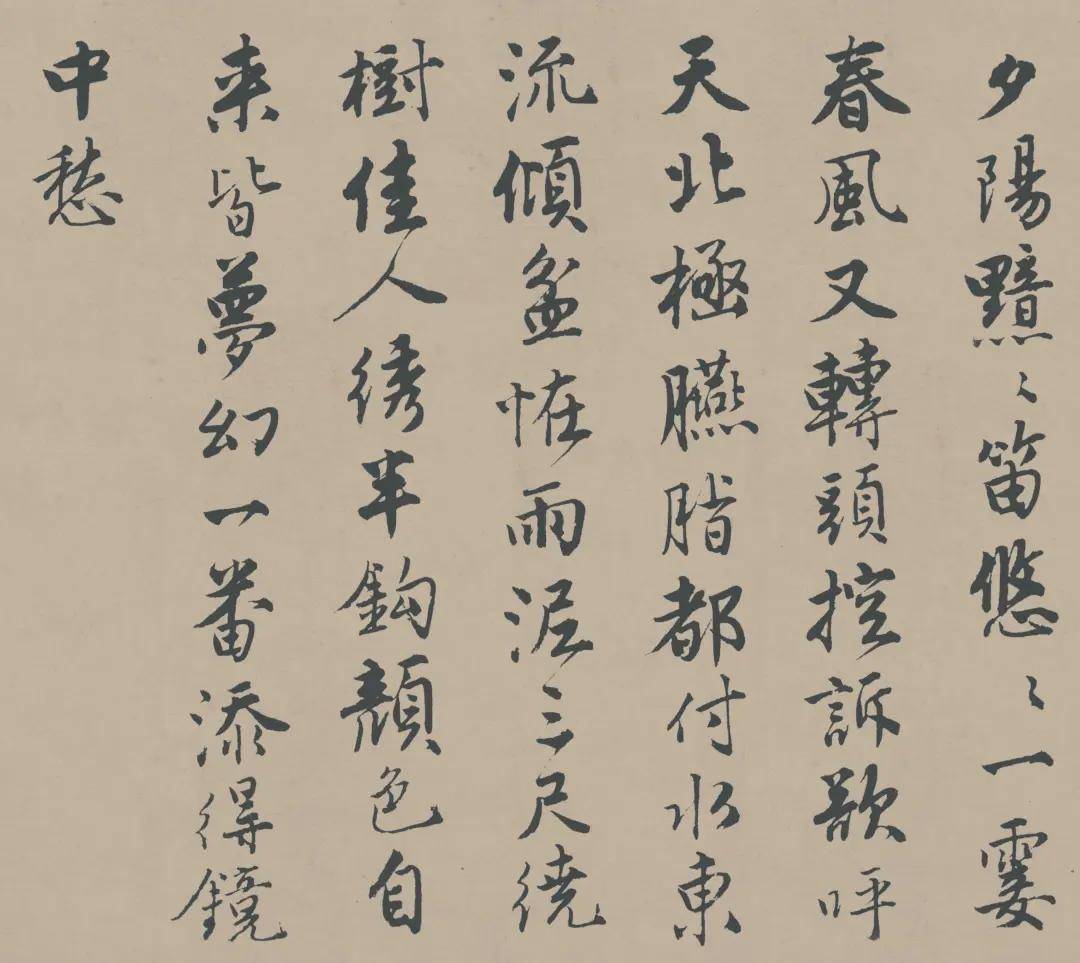 夕陽黯〻笛悠〻一霎
春風又轉頭控訴欲呼
天北極臙脂都付水東
流傾盆恠雨泥三尺繞
樹佳人綉半鈎顏色自
來皆夢幻一番添得鏡
中愁